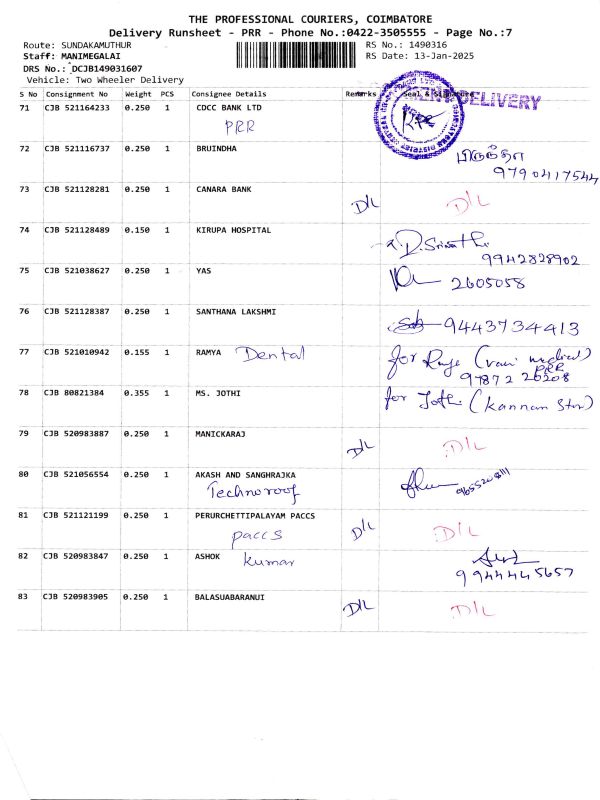 THE PROFESSIONAL COURIERS, COIMBATORE
Delivery Runsheet - PRR - Phone No.:0422-3505555 - Page No.:7
Route: SUNDAKAMUTHUR RS No.: 1490316
Staff: MANIMEGALAI RS Date: 13-Jan-2025
DRS No.: DCJB149031607
Vehicle: Two Wheeler Delivery
S No Consignment No Weight PCS Consignee Details Remarks Seal & Signature
71 CJB 521164233 0.250 1 CDCC BANK LTD
PRR
72 CJB 521116737 0.250 1 BRUINDHA
9790417544
73 CJB 521128281 0.250 1 CANARA BANK D/L D/L
74 CJB 521128489 0.150 1 KIRUPA HOSPITAL
9942828902
75 CJB 521038627 0.250 1 YAS 2605058
76 CJB 521128387 0.250 1 SANTHANA LAKSHMI
9443734413
77 CJB 521010942 0.155 1 RAMYA Dental for
PRR
97872 20208
78 CJB 80821384 0.355 1 MS. JOTHI for Jothi (Kannan Stor)
79 CJB 520983887 0.250 1 MANICKARAJ D/L D/L
80 CJB 521056554 0.250 1 AKASH AND SANGHRAJKA
Technoroof
81 CJB 521121199 0.250 1 PERURCHETTIPALAYAM PACCS D/L D/L
paccs
82 CJB 520983847 0.250 1 ASHOK kumar
9944445657
83 CJB 520983905 0.250 1 BALASUABARANUI D/L D/L